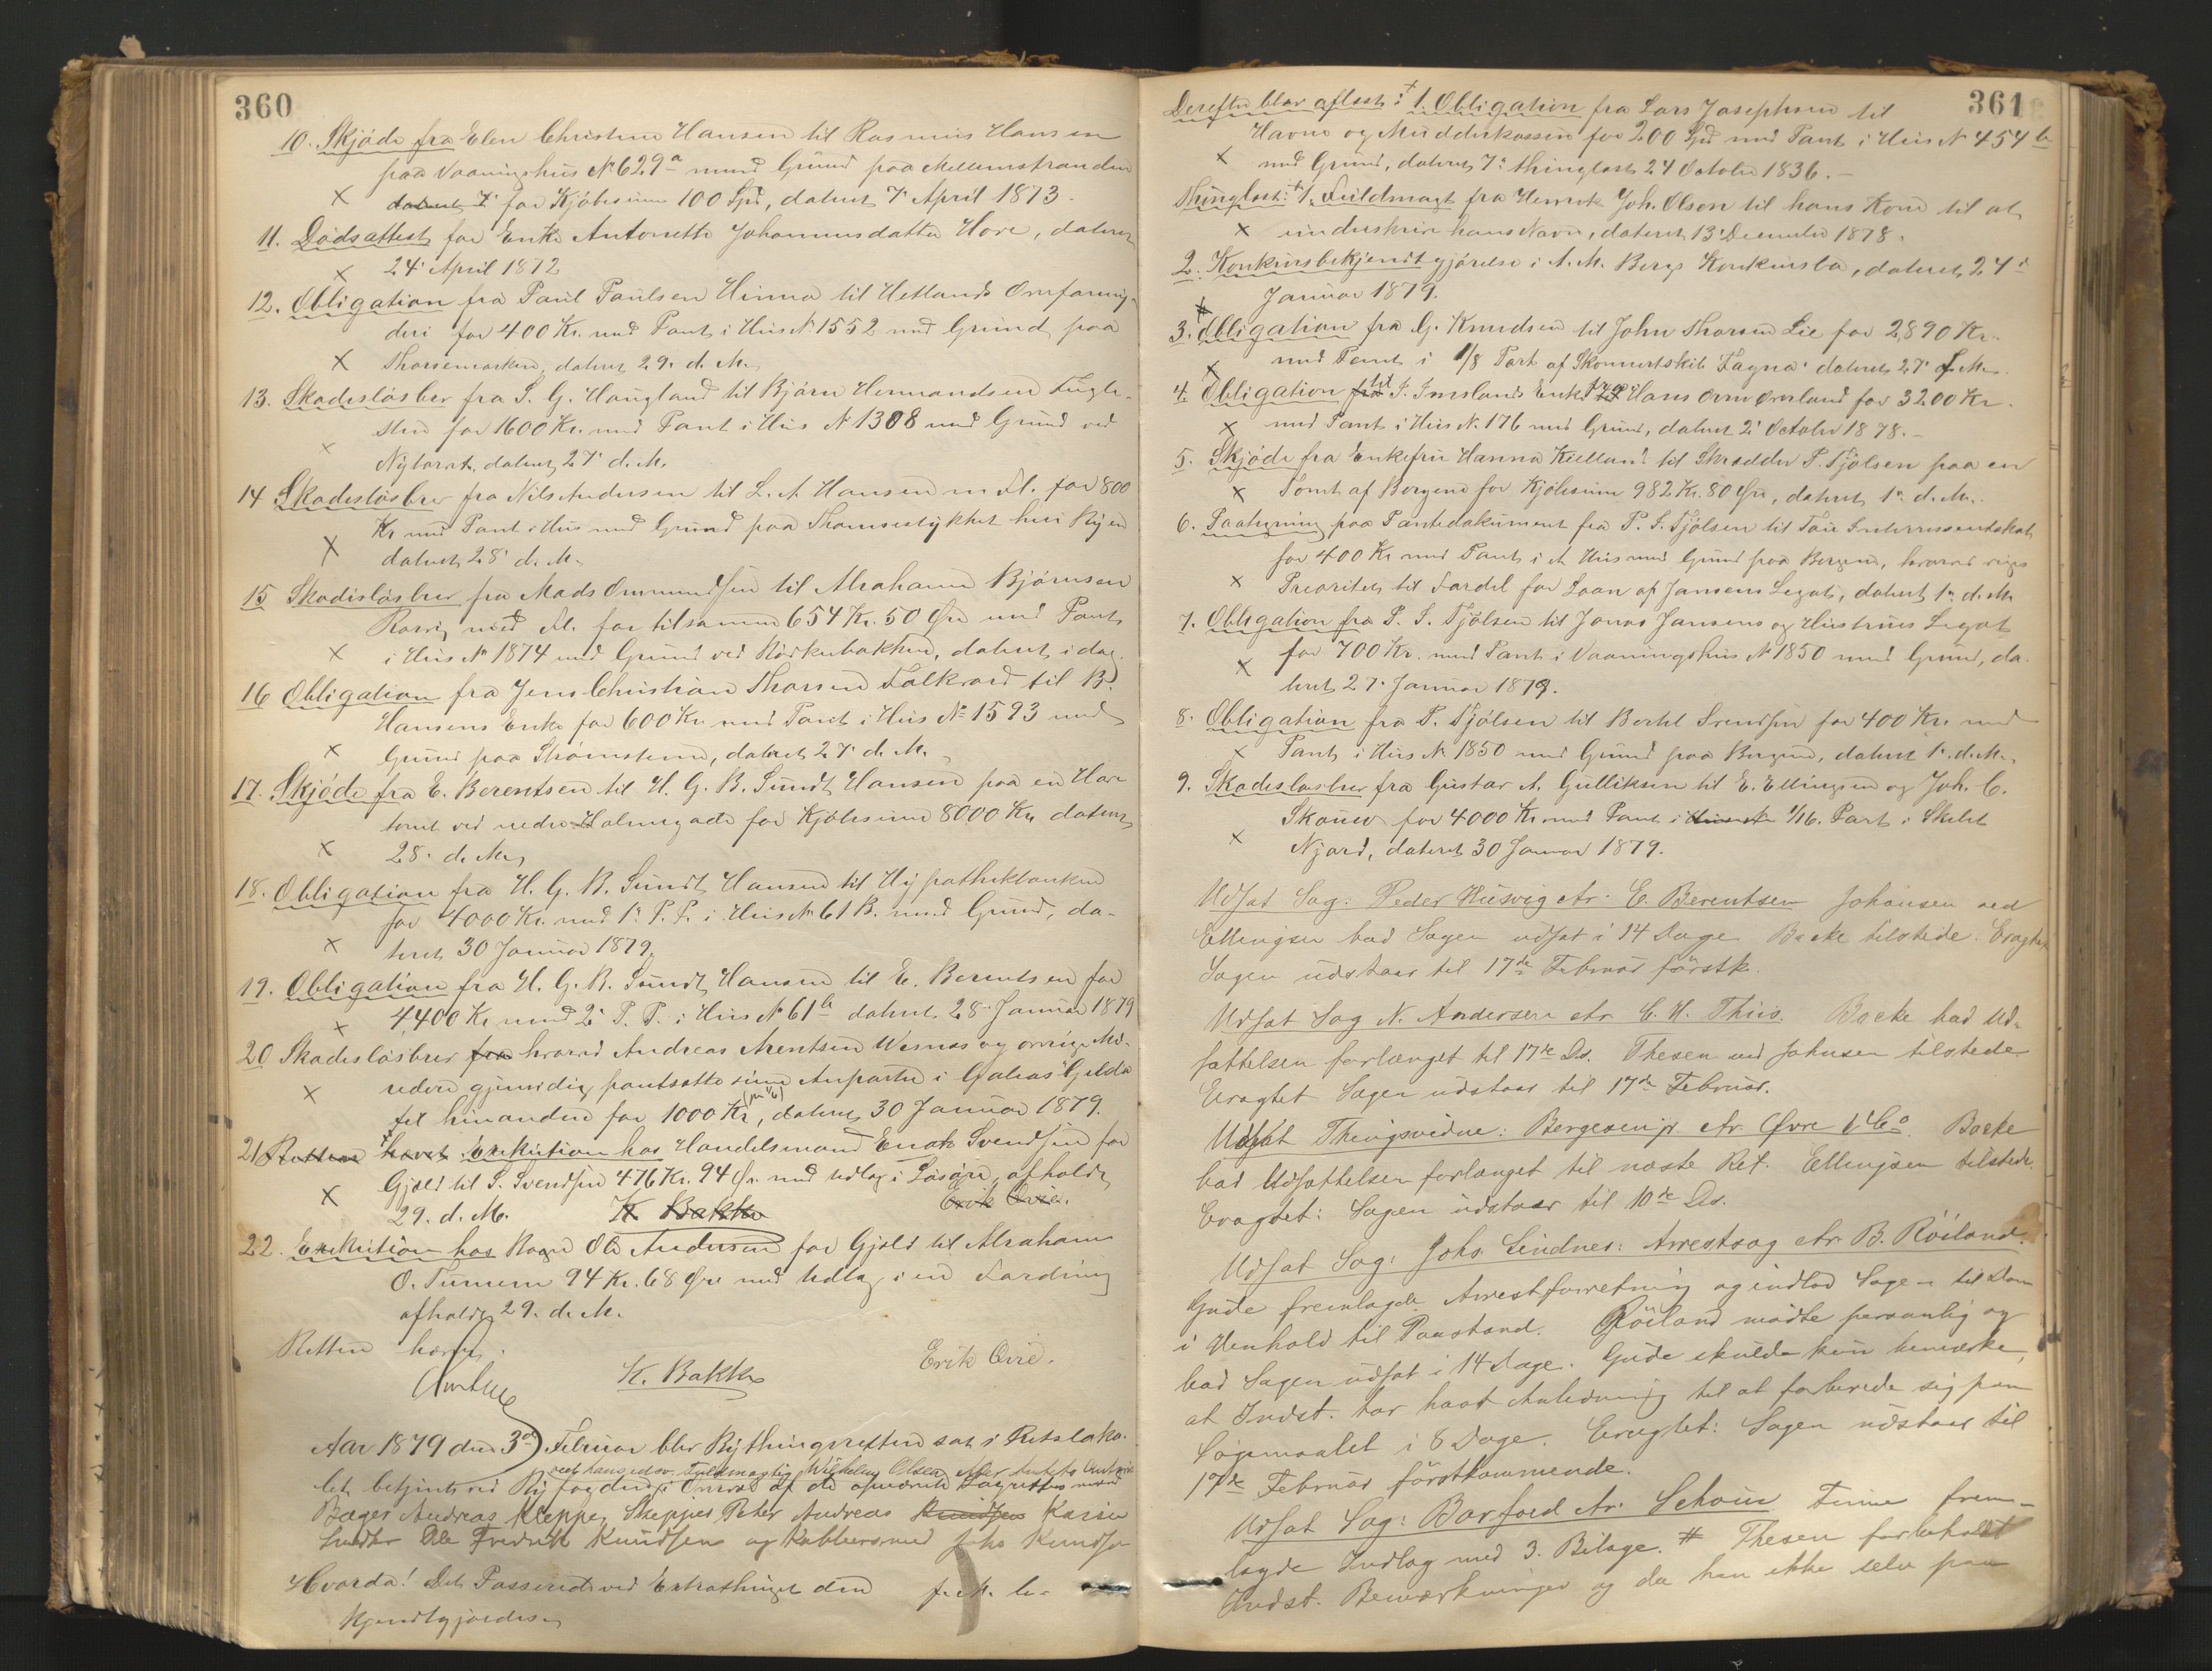 360
10. Skjöde fra Elen Christine Hansen til Rasmus Hansen
paa Vaaningshus No 629a med Grund paa Mellemstranden
X for Kjöbesum 100 Spd, dateret 7 April 1873.
11. Dödsattest for Enke Antonette Johannesdatter Hove, dateret
X 24' April 1872
12. Obligation fra Paul Paulsen Hinna til Hetlands Overformyn-
deri for 400 Kr. med Pant i Hus No 1552 med Grund paa
X dateret 29. d. M.
13. Skadeslösbrev fra S. G. Haugland til Björn Hermandsen Fugle-
sten for 1600 Kr. med Pant i Hus No 1308 med Grund ved
X Nytorvet, dateret 27' d. M.
14 Skadeslösbrev fra Nils Andersen til L. A. Hansen m. Fl. for 800
Kr med Pant i Hus med Grund paa Thomsestykket
X dateret 28' d. M.
15 Skadeslösbrev fra Mads Ommundsen til Abraham Björnsen
med Fl. for tilsammen 654 Kr. 50 Öre med Pant
X i Hus No 1874 med Grund ved dateret i dag.
16 Obligation fra Jens Christian Thorsen Falkvard til B.
Hansens Enke for 600 Kr. med Pant i Hus No 1593 med
X Grund paa Strömstenen, dateret 27' d. M.
17. Skjöde fra E. Berentsen til H. G. B. Sundt Hansen paa en Have
tomt ved nedre Holmegade for Kjöbesum 8000 Kr. dateret
X 28' d. M.
18. Obligation fra H. G. B. Sundt Hansen til Hypothekbanken
for 4000 Kr. med 1' P. P. i Hus No 61 B. med Grund, da-
X teret 30 Januar 1879.
19. Obligation fra H. G. B. Sundt Hansen til E. Berentsen for
X 4,400 Kr med 2' P. P. i Hus No 61b dateret 28' Januar 1879
20 Skadeslösbrev fra hvorved Andreas Arentsen Wesnes og övrige Me-
X redere gjensidig pantsætte sine Anparter i Galeas "Gelda
til hinanden for 1000 Kr, dateret 30 Januar 1879.
21 Retten hævet Exekution hos Handelsmand Enok Svendsen for
Gjæld til S. Svendsen 476 Kr. 94 Ör. med Udlæg i Lösöre, afholdt
X 29. d. M. K Bakke Erik Qvie.
22. Exekution hos Ole Andersen for Gjæld til Abraham
O. 94 Kr. 68 Öre med Udlæg i en
afholdt 29. d. M.
Retten hævet.
K. Bakke Erik Qvie.
Aar 1879 den 3de Februar blev Bythingsretten sat i Retsloka-
ved hans edsv. Fuldmægtig Wilhelm Olsen efter
let betjent ved Byfogden i Overvær af de opnævnte Lagrettesmænd
Bager Andreas Kleppe, Skipper Peter Andreas Knudsen
Snedker Ole Fredrik Knudsen og Kobbersmed Johs Knudsen
Hvorda! Det Passerede ved Extrathinget den f. M. be-
kjendtgjordes.
361
Derefter blev aflæst: 1. Obligation fra Lars Josephsen til
Havne og Mudderkassen for 200 Spd med Pant i Hus No 454b
X med Grund, dateret 7' thinglæst 24 October 1836.
Thinglæst: 1. Fuldmagt fra Henrik Joh. Olsen til hans Kone til at
X underskrive hans Navn, dateret 13' December 1878.
2. Konkursbekjendtgjörelse i A. M. Bergs Konkursbo, dateret 24'
X Januar 1879.
3. Obligation fra G. Knudsen til John Thorsen Lie for 2,890 Kr.
X med Pant i 1/8 Part af Skonnertskib "Fagna" dateret 27' f. M.
4. Obligation fra til Imslands Enke fra Hans Orm Överland for 3200 Kr.
X med Pant i Hus No 176 med Grund, dateret 2' October 1878.
5. Skjöde fra Enkefru Hanna Kielland til Skrædder P. Tjölsen paa en
X Tomt af Bergene for Kjöbesum 982 Kr. 80 Öre, dateret 1' d. M.
6. Paategning paa Pantedokument fra P. S. Tjölsen til
for 400 Kr med Pant i et Hus med Grund paa Bergene, hvorved viges
X Prioritet til Fordel for Laan af Jansens Legat, dateret 1' d. M.
7. Obligation fra P. S. Tjölsen til Jonas Jansens og Hustrues Legat
X for 700 Kr. med Pant i Vaaningshus No 1850 med Grund, da-
teret 27' Januar 1879.
8. Obligation fra P. Tjölsen til Bertel Svendsen for 400 Kr. med
X Pant i Hus No 1850 med Grund paa Bergene, dateret 1' d. M.
9. Skadeslösbrev fra Gustav A. Gulliksen til E. Ellingsen og Joh. C.
Skouw for 4000 Kr. med Pant i 1/16. Part i Skibet
X Njord, dateret 30 Januar 1879.
Udsat Sag: Peder Husvig ctr. E. Berentsen Johansen ved
Ellingsen bad Sagen udsat i 14 Dage Backe tilstede. Eragtet
Sagen udstaar til 17de Februar förstk.
Udsat Sag N. Andersen ctr. C. H. Thiis. Backe bad Ud-
sættelsen forlænget til 17de Ds. Thesen ved Johnsen tilstede
Eragtet Sagen udstaar til 17de Februar.
Udsat Thingsvidne: Bergesen jr ctr. Övre & Co. Backe
bad Udsættelsen forlænget til næste Ret. Ellingsen tilstede.
Eragtet: Sagen udstaar til 10de Ds.
Udsat Sag: Johs Lindnes: Arrestsag ctr. B. Röiland.
Gude fremlagde Arrestforretning og indlod Sagen til Dom
i Henhold til Paastand. Röiland mödte personlig og
bad Sagen udsat i 14 Dage. Gude skulde kun bemærke,
at Indst. har havt Anledning til at forberede sig paa
Sögsmaalet i 8 Dage. Eragtet: Sagen udstaar til
17de Februar förstkommende.
Udsat Sag: Barfoed ctr. Schou frem-
lagde Indlæg med 3. Bilage. # Thesen forbeholdt
Indst. Bemærkninger og da han ikke selv paa